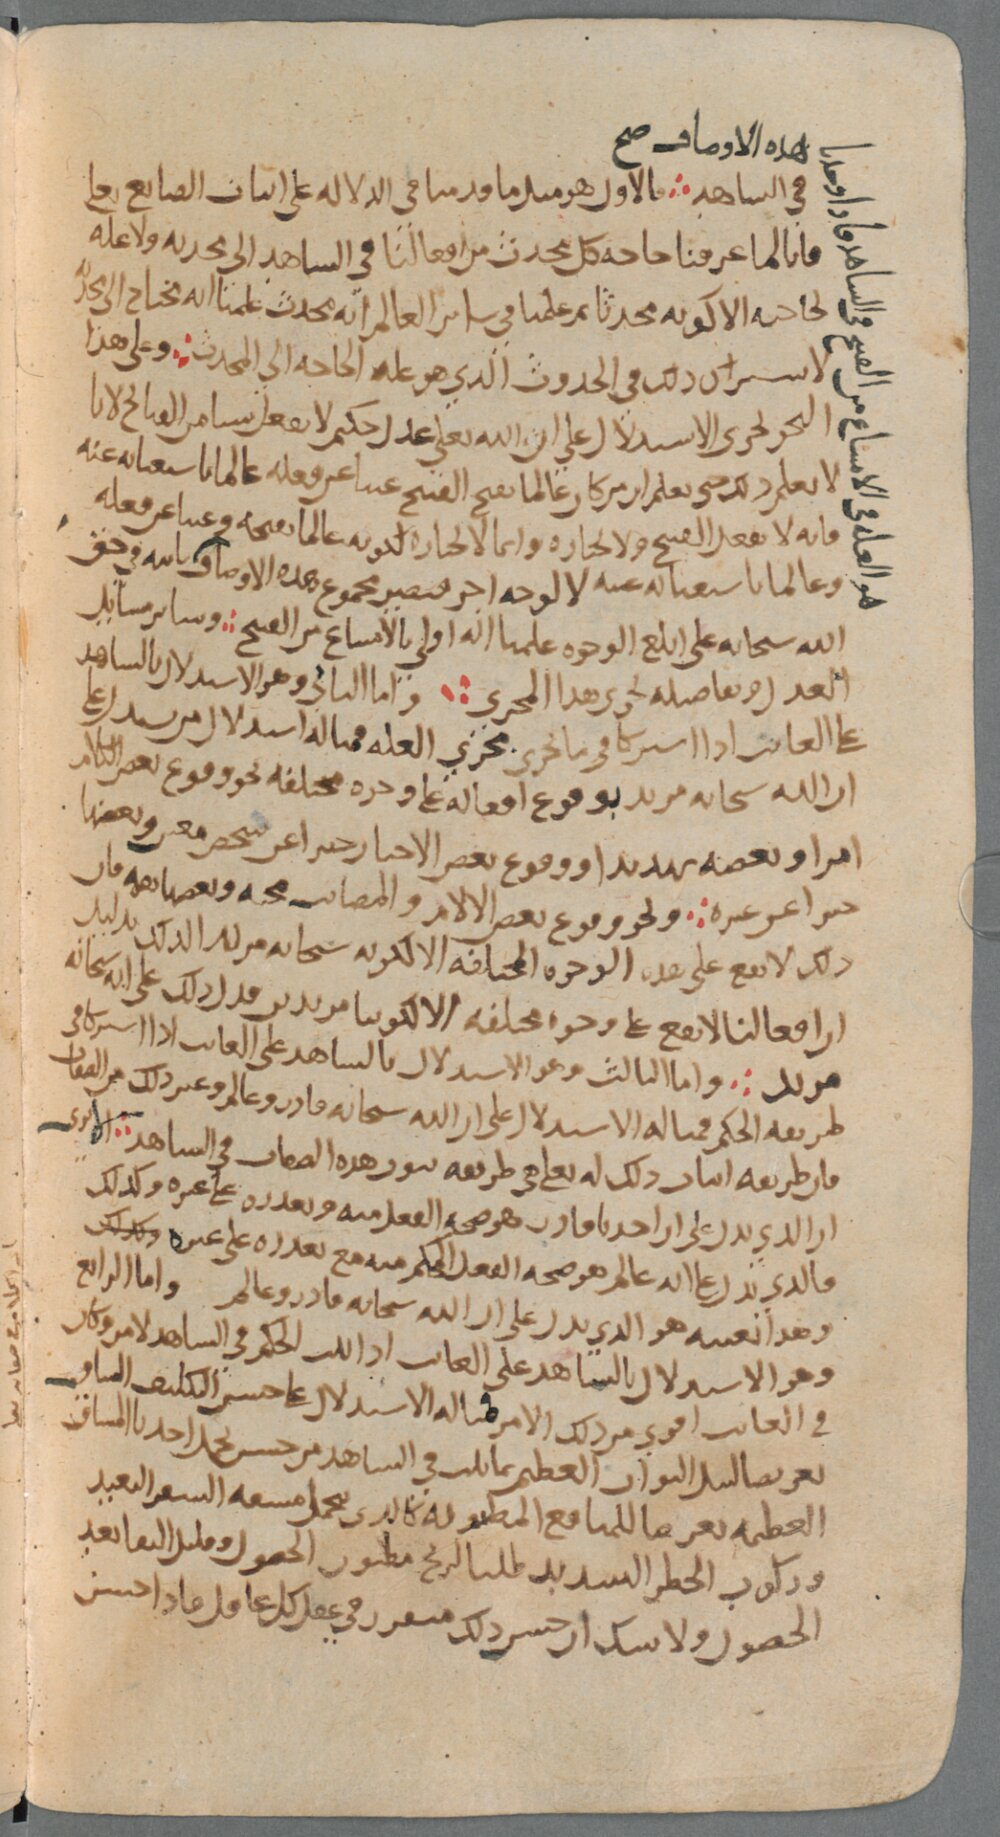 هذه الاوصاف صح
في الشاهد فالاول هو مثل ما قدمنا في الدلاله على اثبات الصانع تعلى
فانا لما عرفنا حاجه كل محدث من افعالنا في الشاهد الى محدثه ولا عله
لحاجته الا كونه محدثا ثم علمنا في سائر العالم انه محدث علمنا انه محتاج الى محدث
لاشتراك ذلك في الحدوث الذي هو عله الحاجه الى المحدث وعلى هذا
النحو تجري الاستدلال على ان الله تعلى عدل حكيم لا يفعل شيئا من القبائح لانا
لا نعلم ذلك حتى نعلم ان من كان عالما بقبح القبيح غنيا عن فعله عالما باستغنائه عنه
فانه لا يفعل القبيح ولا يختاره وانما لا يختاره لكونه عالما بقبحه وغنيا عن فعله
وعالما باستغنائه عنه لا لوجه اخر فتصير مجموع هذه الاوصاف ثابته في حق
الله سبحانه على ابلغ الوجوه علمنا انه اولى بالامتناع من القبيح وسائر مسائل
العدل وتفاصيله تجري هذا المجرى واما الثاني وهو الاستدلال بالشاهد
على الغائب اذا اشتركا في ما يجري مجرى العله فمثاله استدلال من يستدل على
ان الله سبحانه مريد بوقوع افعاله على وجوه مختلفه نحو وقوع بعض الكلام
امرا وبعضه تهديدا ووقوع بعض الاخبار خبرا عن شخص معين وبعضها
خبرا عن غيره ونحو وقوع بعض الالام والمصائب محنه وبعضها نقمه فان
ذلك لا يقع على هذه الوجوه المختلفه الا لكونه سبحانه مريدا لذلك بدليل
ان افعالنا لا تقع على وجوه مختلفه الا لكوننا مريدين فدل ذلك على انه سبحانه
مريد واما الثالث وهو الاستدلال بالشاهد على الغائب اذا اشتركا في
طريقه الحكم فمثاله الاستدلال على ان الله سبحانه قادر وعالم وغير ذلك من الصفات
فان طريقه اثبات ذلك له تعلى هي طريقه ثبوت هذه الصفات في الشاهد الا ترى
ان الذي يدل على ان احدنا قادر هو صحه الفعل منه وتعذره على غيره وكذلك
فالذي يدل على انه عالم هو صحه الفعل المحكم منه مع تعذره على غيره وكذلك
وهذا بعينه هو الذي يدل على ان الله سبحانه قادر وعالم واما الرابع
وهو الاستدلال بالشاهد على الغائب اذا ثبت الحكم في الشاهد لامر وكان
في الغائب اقوى من ذلك الامر فمثاله الاستدلال على حسن التكليف الشاق
تعريضا لنيل الثواب العظيم بما ثبت في الشاهد من حسن تحمل احدنا المشاق
العظيمه تعريضا للمنافع المظنونه كالذي يتحمل مشقه السفر البعيد
وركوب الخطر الشديد طلبا لربح مظنون الحصول وقليل البقا بعد
الحصول ولا شك ان حسن ذلك متقرر في عقل كل عاقل فاذا حسن
هو العله في الامتناع من القبيح في الشاهد فاذا وجدنا